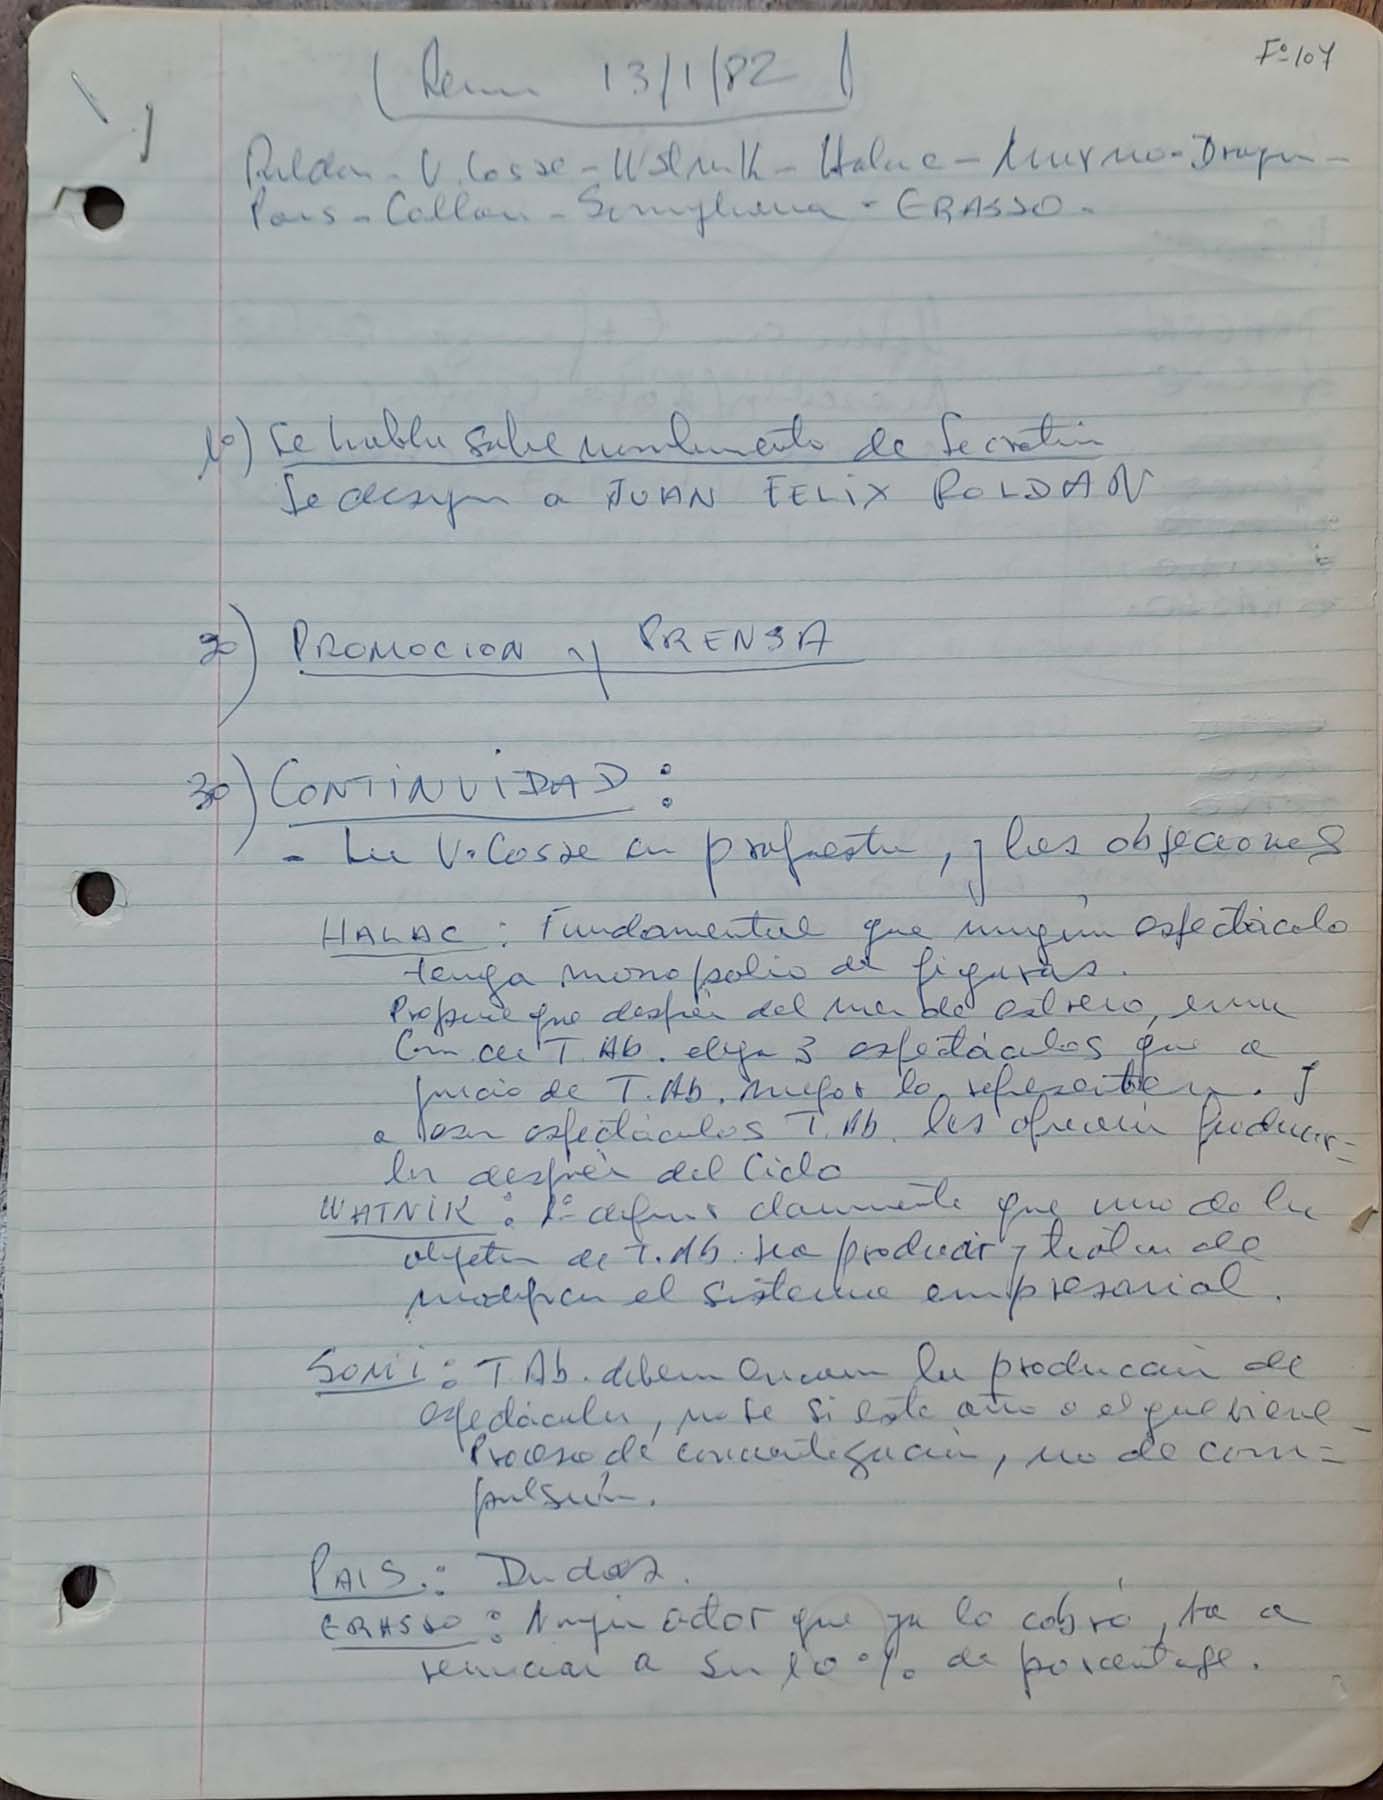 Fº 107
Reun 13/1/82
Roldan - V. Cosse - Watnik - Halac - - Dragun -
Pais - Callau - Somigliana - ERASSO -
1º) Se habla sobre nombramiento de Secretario
Se designa a JUAN FELIX ROLDAN
2º) PROMOCION y PRENSA
3º) CONTINUIDAD:
- Lee V. Cosse su propuesta, y las objeciones
HALAC: Fundamental que ningún espectáculo
tenga monopolio de figuras.
Propone que después del mes de estreno, una
Com de T. Ab. elija 3 espectáculos que a
juicio de T. Ab. mejor lo representen. Y
a esos espectáculos T. Ab. les ofrecería producir=
los después del Ciclo
WATNIK: 1º definir claramente que uno de los
objetivos de T. Ab. sea producir y tratar de
modificar el sistema empresarial.
SOMI: T Ab. debe encarar la producción de
espectáculos, no se si este año o el que viene -
Proceso de concientización, no de com=
pulsión.
PAIS.: Dudas.
ERASSO: Ningún actor que ya lo cobró, va a
renunciar a su 10 % de porcentaje.